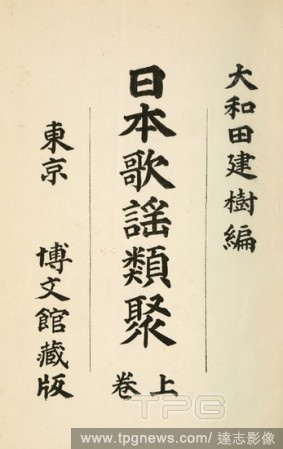 大和田建樹編
日本歌謡類聚
上卷
東京 博文館藏版
TPG
www.tpgnews.com/達志影像